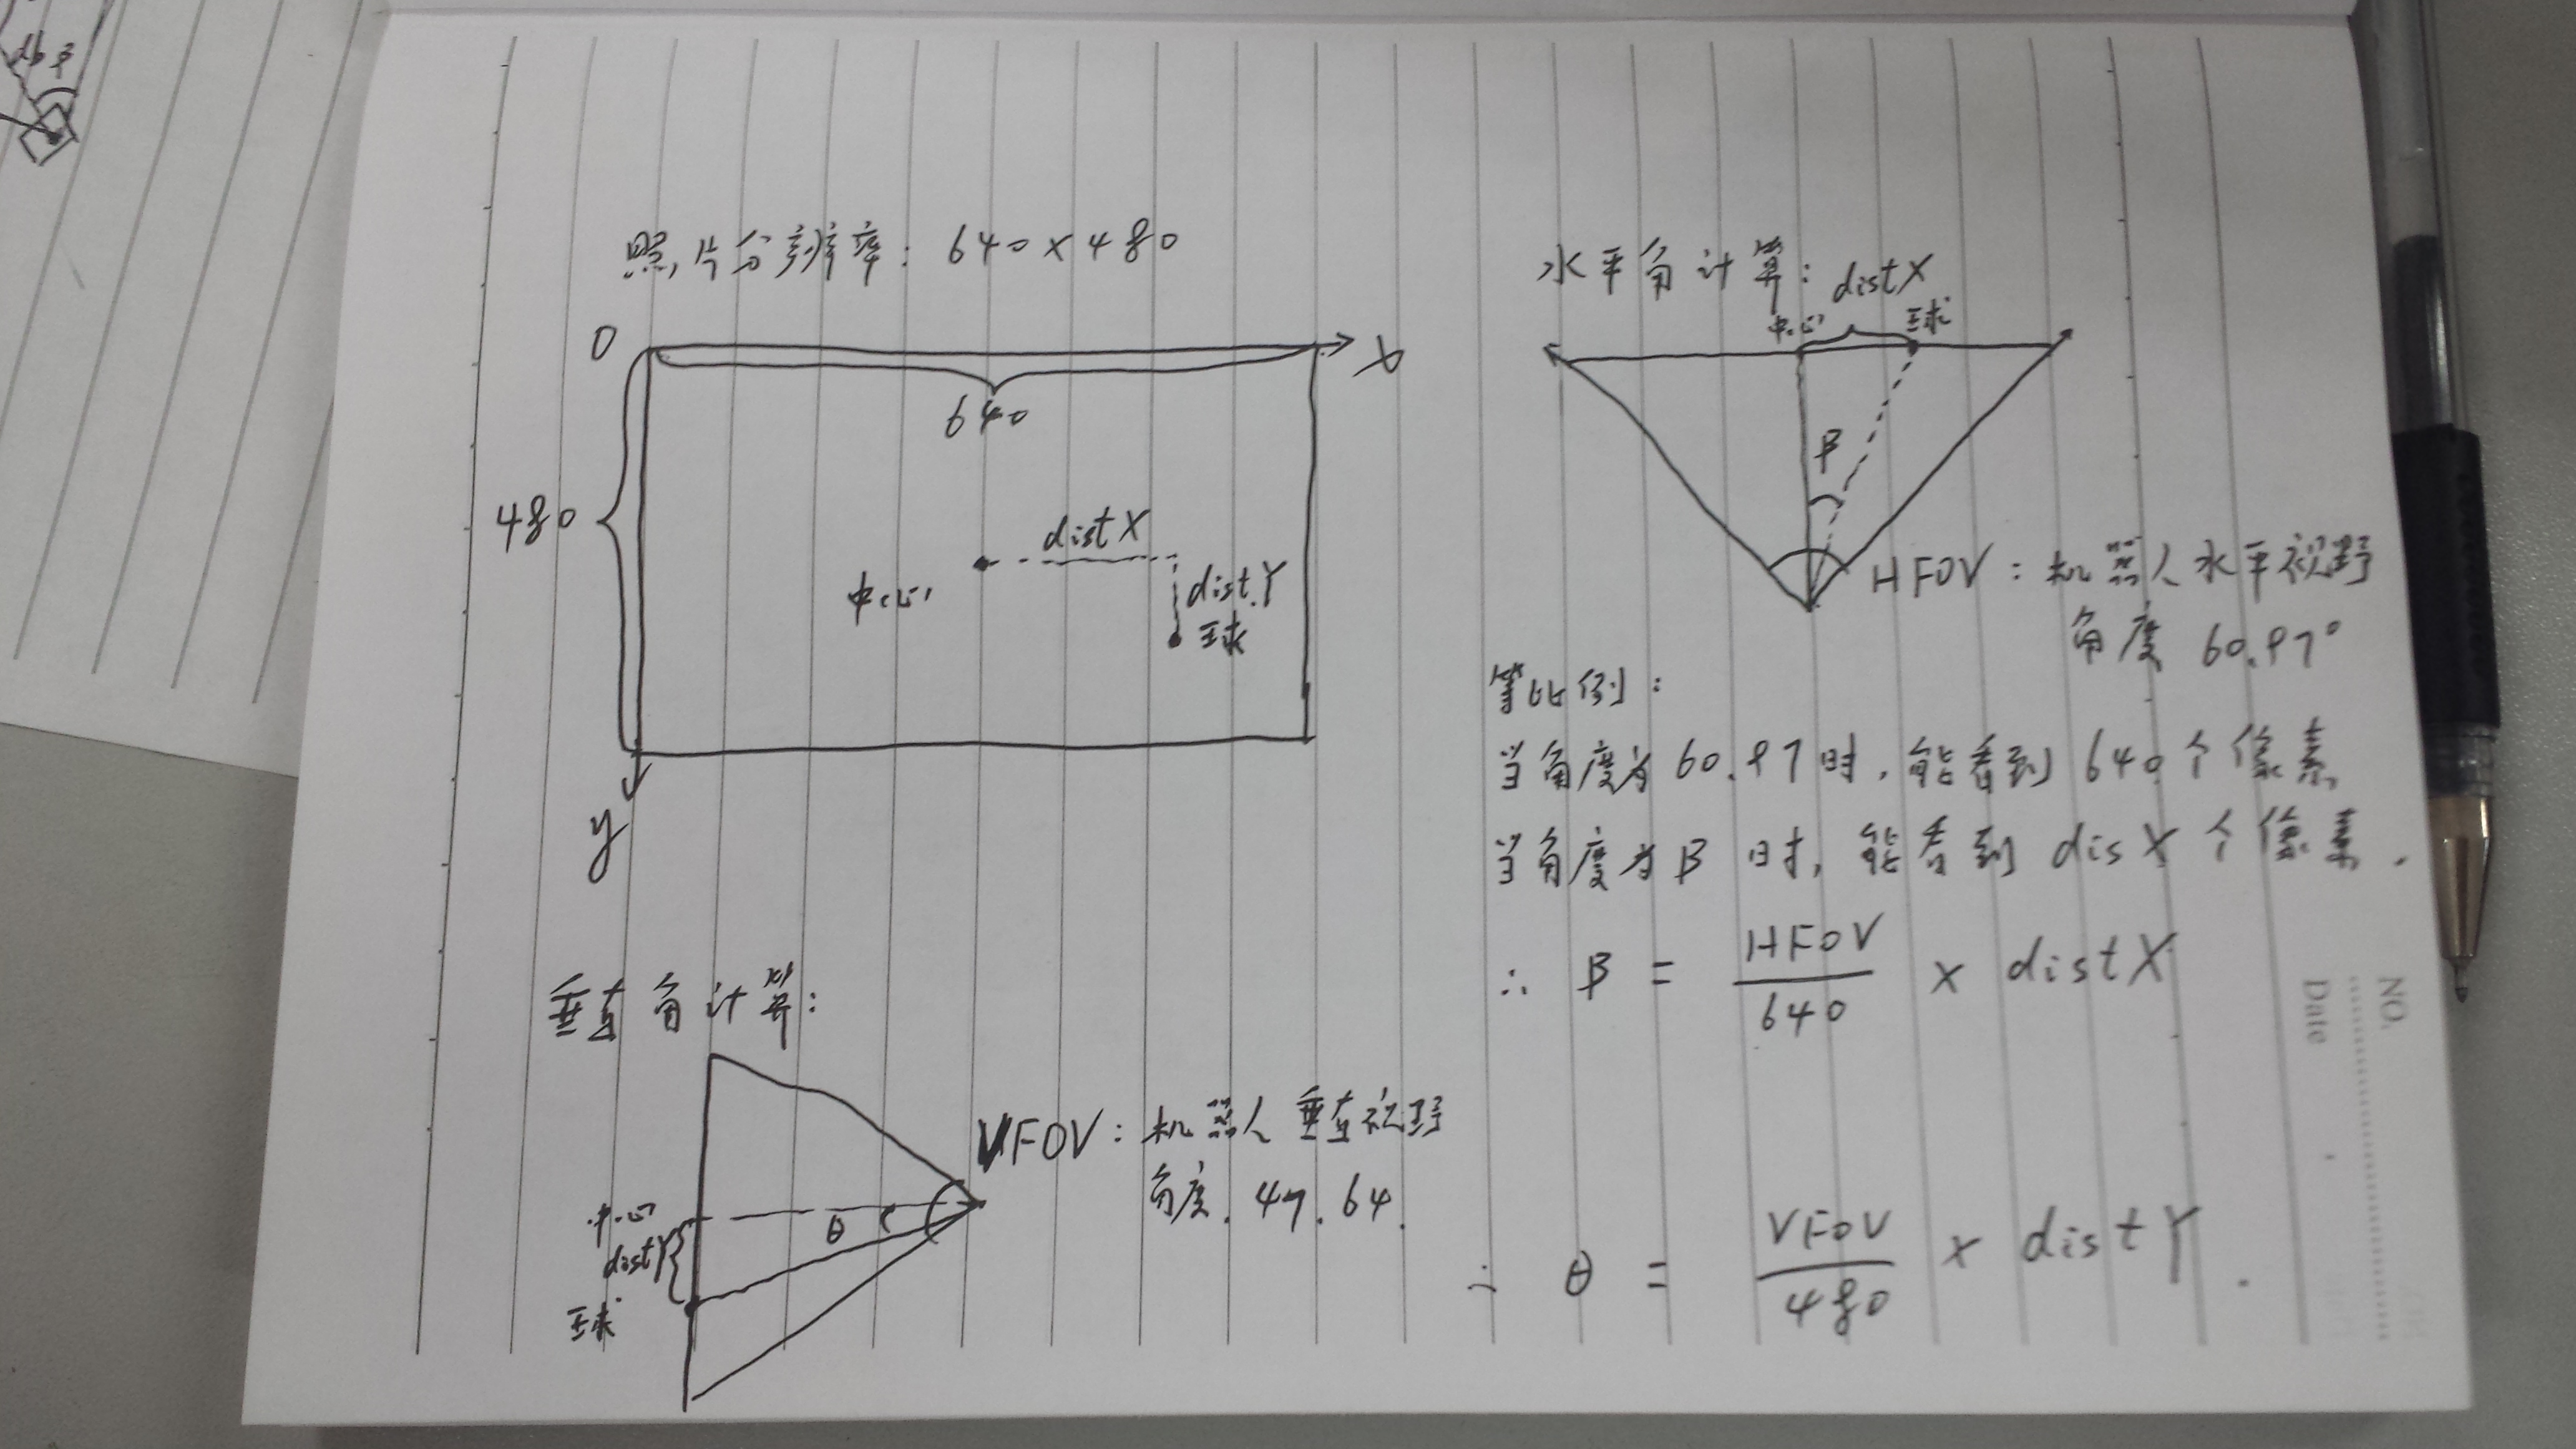 照片分辨率：640×480
0
x
640
480
distX
中心
distY
球
y
垂直角计算：
VFOV：机器人垂直视野
角度.47.64.
中心
θ
distY
球
水平角计算：
distX
中心
球
β
HFOV：机器人水平视野
角度 60.97°
等比例：
当角度为60.97时，能看到640个像素
当角度为β时，能看到disX个像素.
∴ β = HFOV/640 × distX
∴ θ = VFOV/480 × distY.
NO.
Date